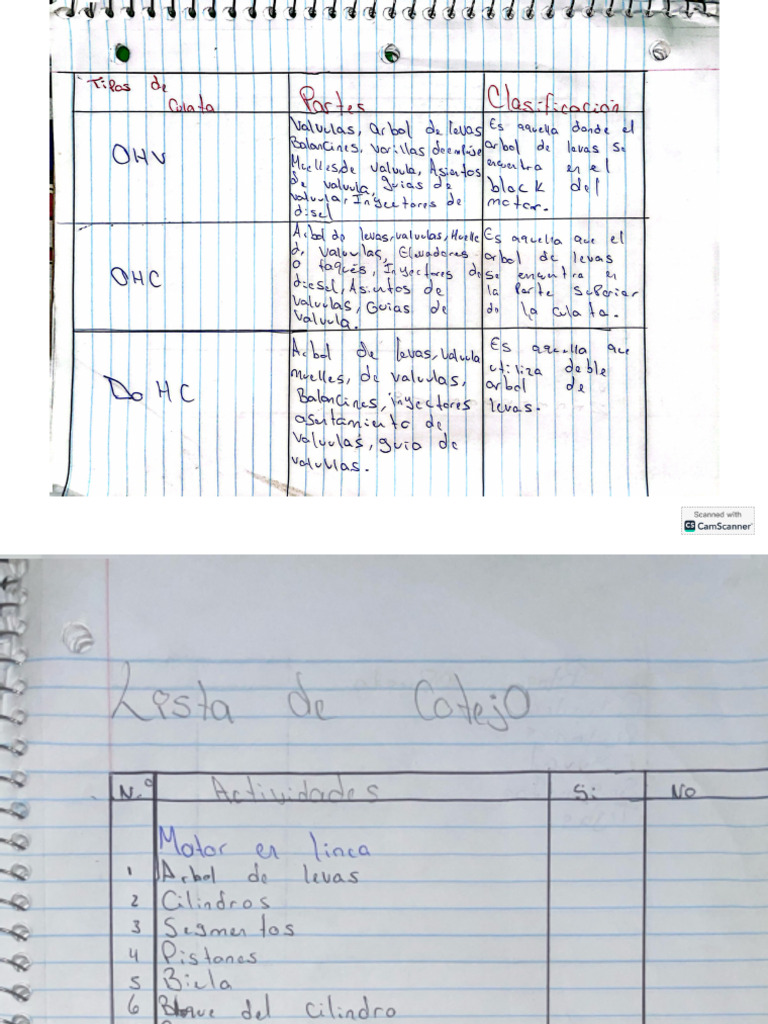 Tipos de
Culata
Partes
Clasificación
OHV
Valvulas, arbol de levas
Balancines, varillas de empuje
Muelles de valvula, Asientos
de valvula, guias de
valvula, Inyectores de
disel
Es aquella donde el
arbol de levas se
encuentra en el
block del
motor.
OHC
Arbol de levas, valvulas, Muelle
de valvulas, Elevadores
o taqués, Inyectores de
diesel, Asientos de
valvulas, Guias de
valvula.
Es aquella que el
arbol de levas
se encuentra en
la Parte superior
de la culata.
DoHC
Arbol de levas, valvula
muelles, de valvulas,
Balancines, inyectores
asentamiento de
valvulas, guia de
valvulas.
Es aquella que
utiliza doble
arbol de
levas.
Scanned with
CS CamScanner
Lista de Cotejo
N.º Actividades Si No
Motor en linea
1 Arbol de levas
2 Cilindros
3 Segmentos
4 Pistones
5 Biela
6 Bloque del cilindro